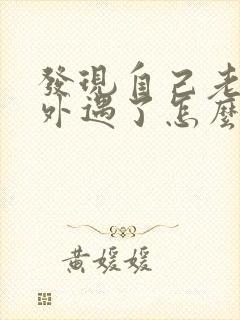 發現自己老
外遇了怎麼
黃媛媛